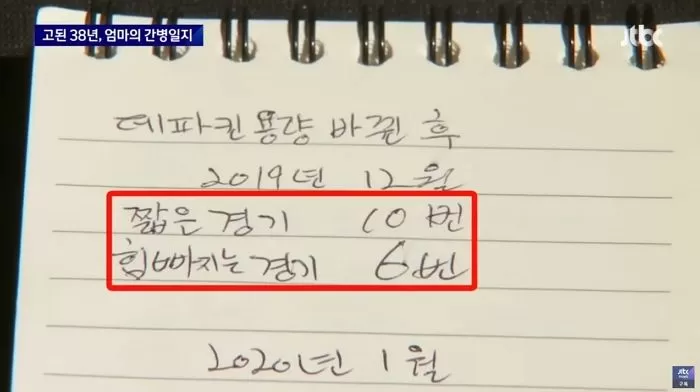 고된 38년, 엄마의 간병일지
jtbc
데파킨 용량 바뀐 후
2019년 12월
짧은 경기 10번
힘빠지는 경기 6번
2020년 1월
jtbc
구독